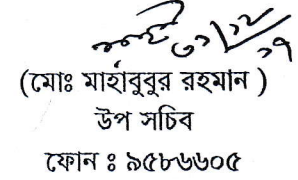 (মোঃ মাহাবুবুর রহমান )
উপ সচিব
ফোন ঃ ৯৫৮৬৬০৫